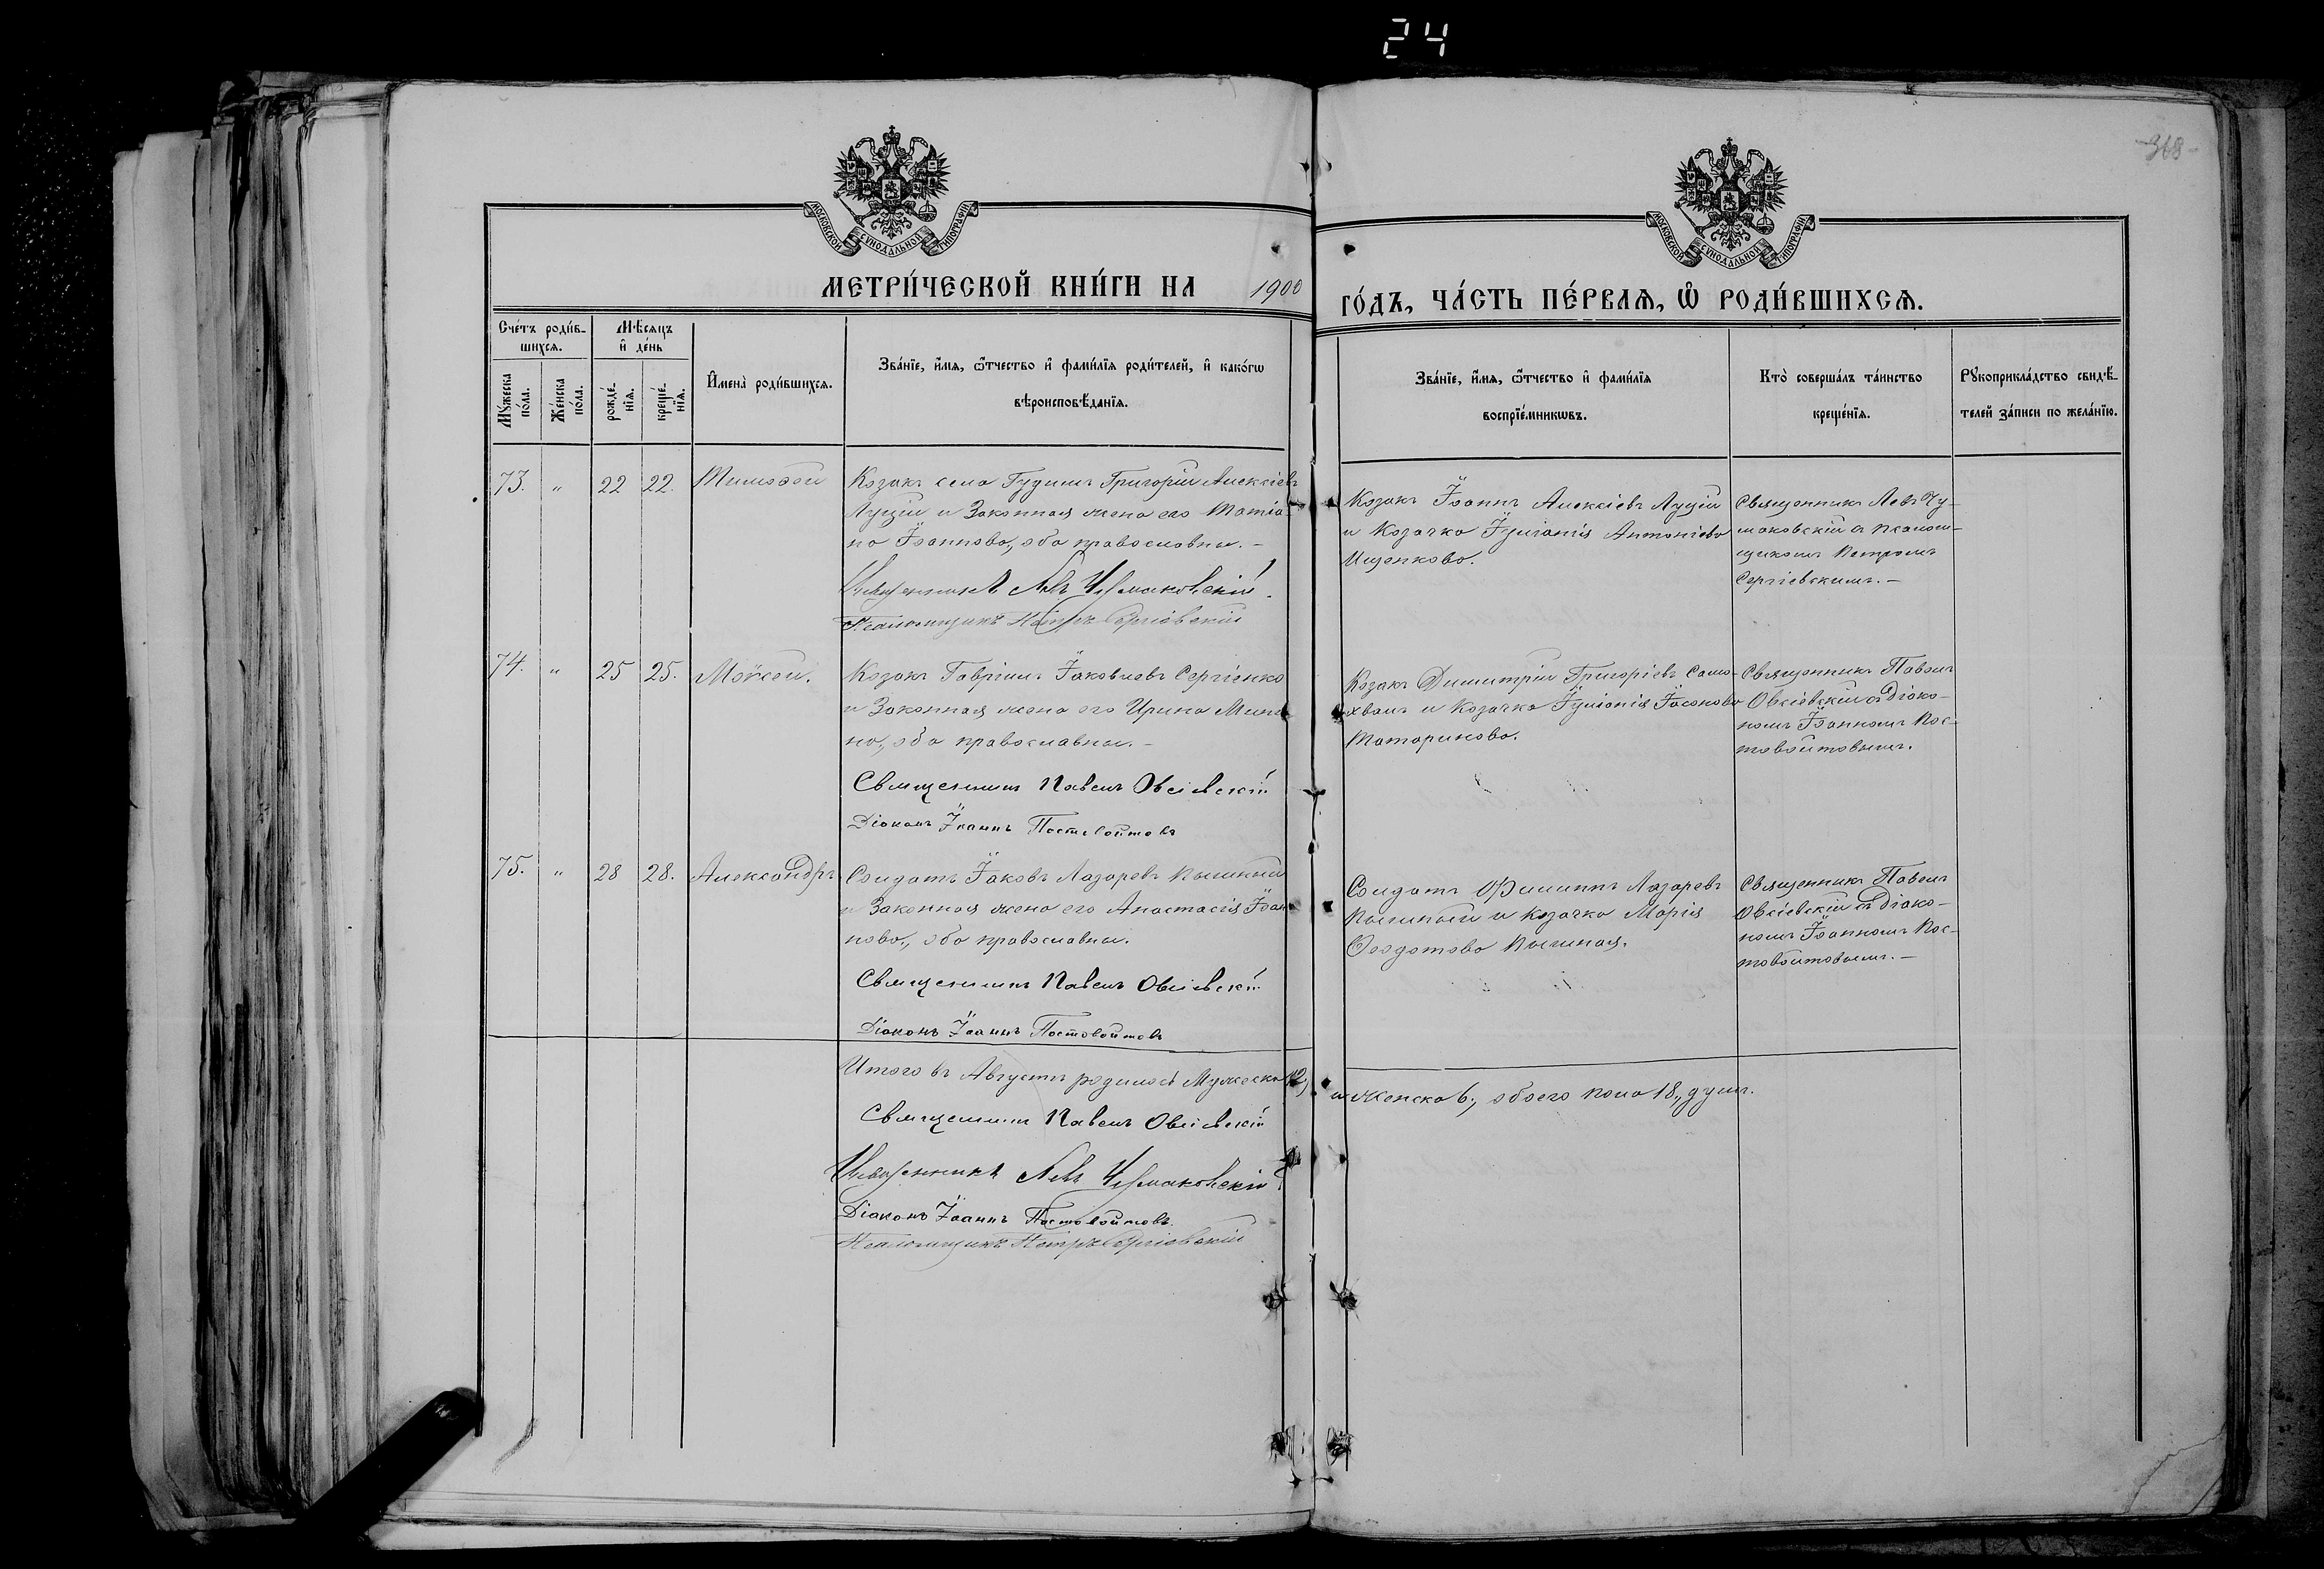 24
318
МОСКОВСКОЙ СѴНОДАЛЬНОЙ ТИПОГРАФІИ
МОСКОВСКОЙ СѴНОДАЛЬНОЙ ТИПОГРАФІИ
МЕТРИ́ЧЕСКОЙ КНИ́ГИ НА 1900
ГО́ДЪ, ЧА́СТЬ ПЕ́РВАѦ, Ѡ РОДИ́ВШИХСѦ.
Сче́тъ роди́в-
шихсѧ.
Мꙋ́жеска по́ла.
Же́нска по́ла.
Мѣ́сяцъ и҆ де́нь
рожде́-нїѧ.
креще́-нїѧ.
И҆мена̀ роди́вшихсѧ.
Зва́нїе, и҆́мѧ, ѻ҆́тчество и҆ фами́лїѧ роди́телей, и҆ како́гѡ
вѣроисповѣ́данїѧ.
Зва́нїе, и҆́мѧ, ѻ҆́тчество и҆ фами́лїѧ
воспрїе́мникѡвъ.
Кто̀ соверша́лъ та́инство
креще́нїѧ.
Рꙋкоприкла́дство свидѣ́-
телей за́писи по жела́нїю.
73. " 22 22. Тимоѳей
Козакъ села Гудимъ Григорій Алексіевъ
Луцій и Законная жена его Татіа-
на Іоаннова, оба православны. –
Священникъ Левъ Чумаковскій.
Псаломщикъ Петръ Сергіевскій
Козакъ Іоаннъ Алексіевъ Луцій
и Козачка Іуліанія Антоніева
Ищенкова.
Священникъ Левъ Чу-
маковскій съ псалом-
щикомъ Петромъ
Сергіевскимъ. –
74. " 25 25. Моѵсей.
Козакъ Гавріилъ Іаковлевъ Сергіенко
и Законная жена его Ирина Мини-
на, оба православны. –
Священникъ Павелъ Овсіевскій
Діаконъ Іоаннъ Постовойтовъ
Козакъ Димитрій Григоріевъ Само-
хвалъ и Козачка Іуліанія Іасонова
Татаринова.
Священникъ Павелъ
Овсіевскій съ Діако-
номъ Іоанномъ Пос-
товойтовымъ.
75. " 28 28. Александръ
Солдатъ Іаковъ Лазаревъ
и Законная жена его Анастасія Іоан-
нова, оба православны.
Священникъ Павелъ Овсіевскій
Діаконъ Іоаннъ Постовойтовъ
Солдатъ Филиппъ Лазаревъ
и козачка Марія
Ѳеодотова
Священникъ Павелъ
Овсіевскій съ Діако-
номъ Іоанномъ Пос-
товойтовымъ. –
Итого въ Августѣ родилось Мужеска 12,
и женска 6., обоего пола 18., душъ.
Священникъ Павелъ Овсіевскій
Священникъ Левъ Чумаковскій
Діаконъ Іоаннъ Постовойтовъ.
Псаломщикъ Петръ Сергіевскій